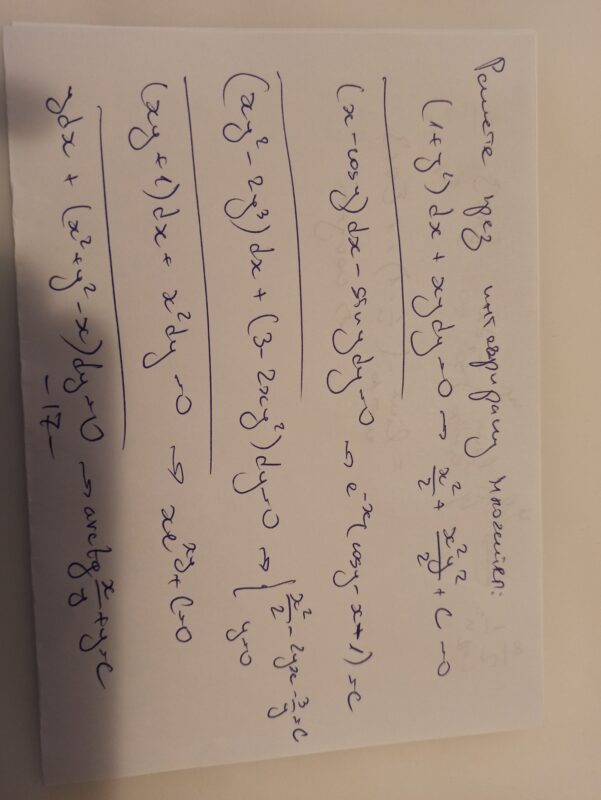 Решете чрез интегриращ множител:
(1+y²)dx + xydy=0 → x²/2 + x²y²/2 + C=0
(x-cosy)dx - sinydy=0 → e⁻ˣ(cosy-x-1)=C
(xy²-2y³)dx + (3-2xy²)dy=0 → { x²/2 - 2yx - 3/y = C
y=0
(xy+1)dx + x²dy=0 → xeˣʸ+C=0
ydx + (x²+y²-x)dy=0 → arctg x/y + y=C
-17-